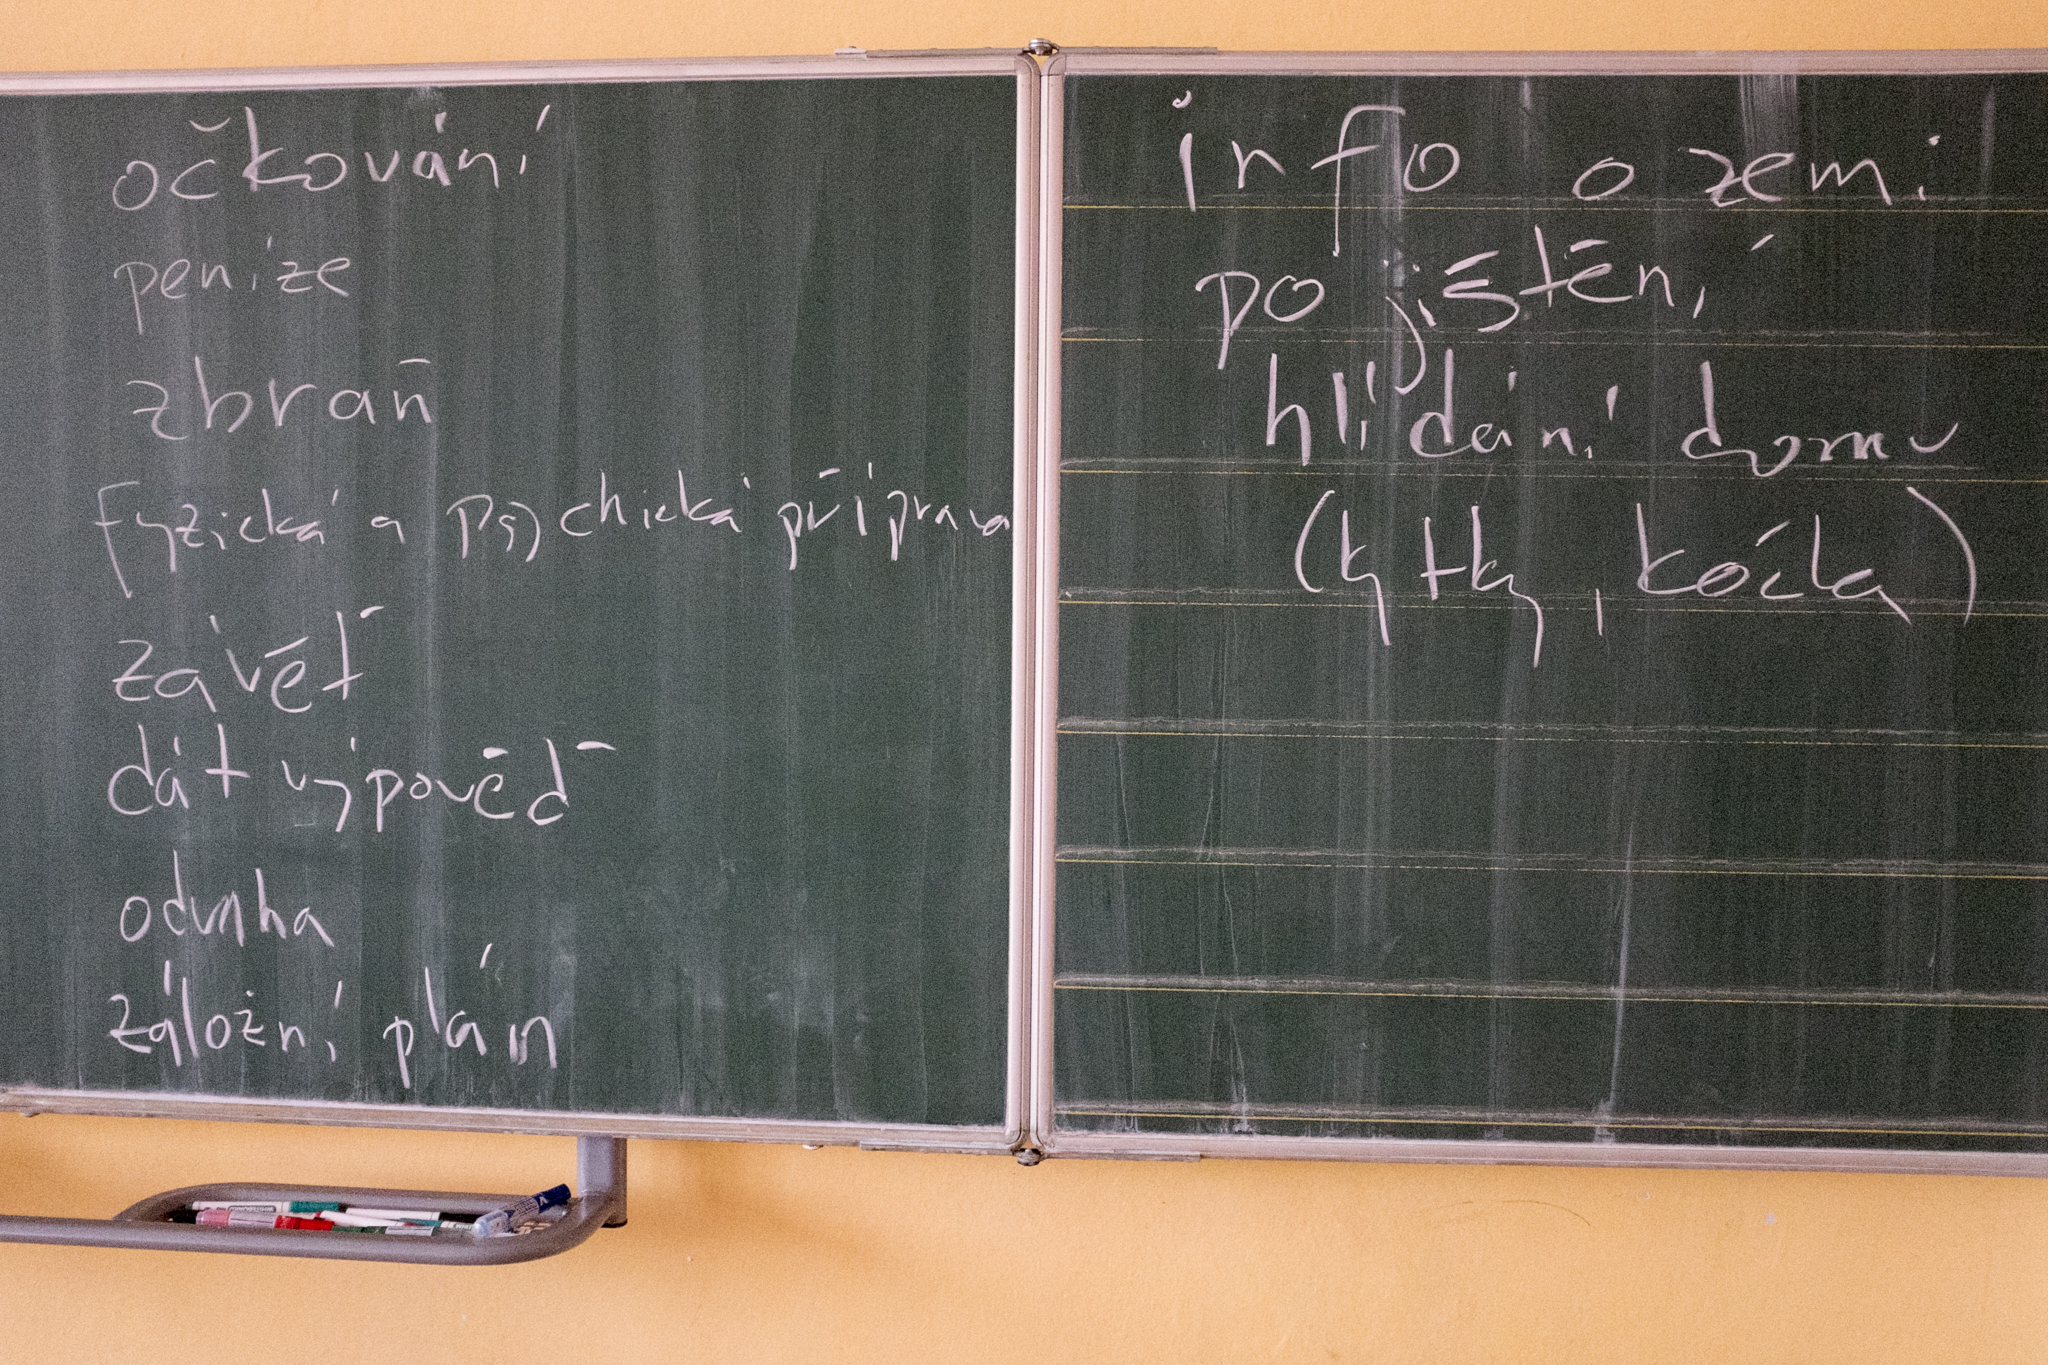 očkování
peníze
zbraň
fyzická a psychická příprava
závěť
dát výpověď
odvaha
záložní plán
info o zemi
pojištění
hlídání domu
(kytky, kočka)